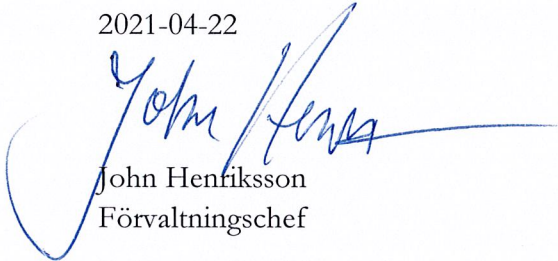 2021-04-22
John Henr
John Henriksson
Förvaltningschef